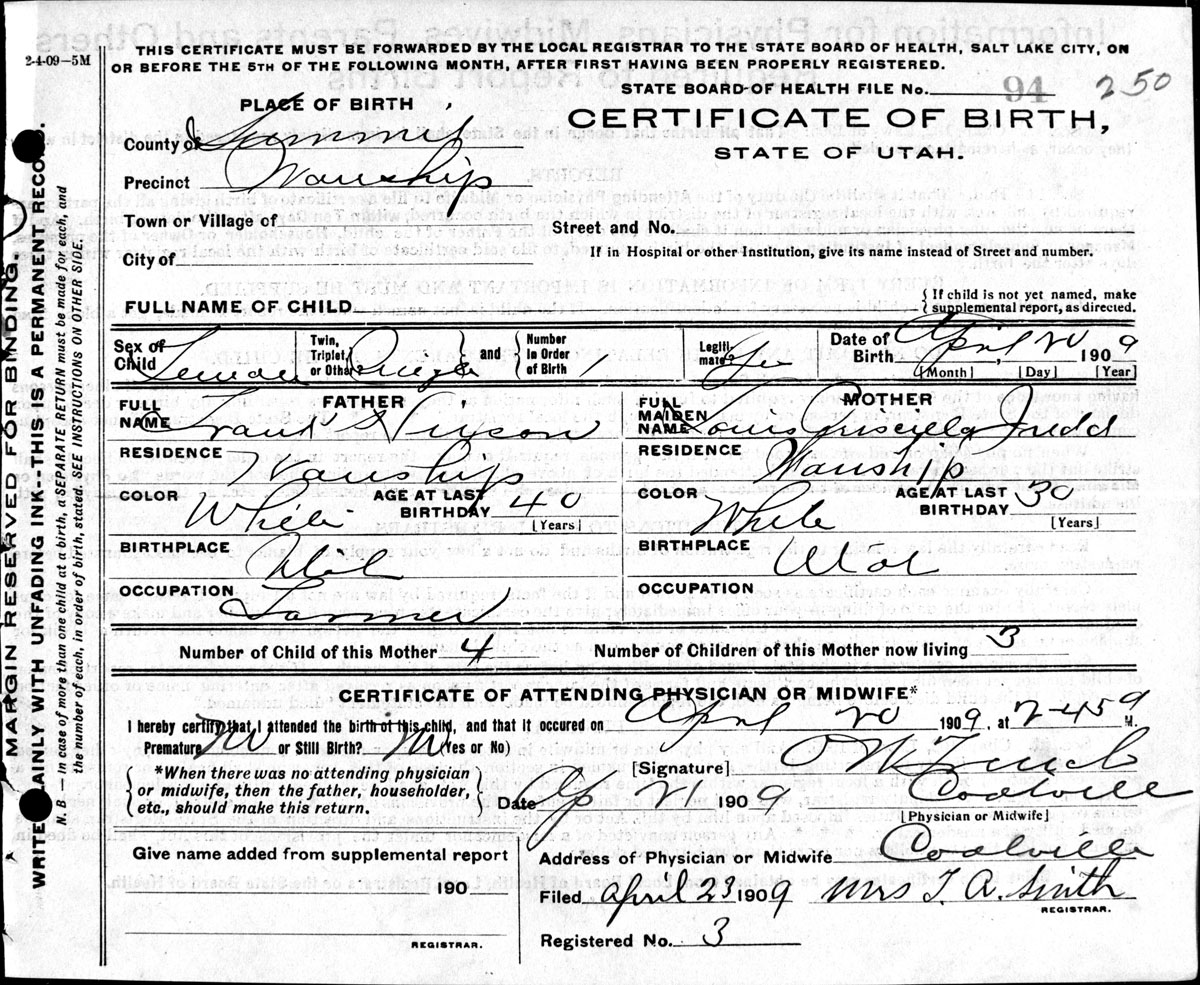 THIS CERTIFICATE MUST BE FORWARDED BY THE LOCAL REGISTRAR TO THE STATE BOARD OF HEALTH, SALT LAKE CITY, ON
2-4-09—5M
OR BEFORE THE 5TH OF THE FOLLOWING MONTH, AFTER FIRST HAVING BEEN PROPERLY REGISTERED.
STATE BOARD OF HEALTH FILE No. 94 250
PLACE OF BIRTH
CERTIFICATE OF BIRTH,
STATE OF UTAH.
County of Summit
Precinct Wanship
Town or Village of
Street and No.
City of
If in Hospital or other Institution, give its name instead of Street and number.
FULL NAME OF CHILD
{If child is not yet named, make supplemental report, as directed.
Sex of Child Female Twin, Triplet, or Other Single } and { Number In Order of Birth 1 Legitimate? Yes Date of Birth April 20 1909
[Month] [Day] [Year]
FATHER
FULL NAME Frank
MOTHER
FULL MAIDEN NAME Louis Priscilla Judd
RESIDENCE Wanship
RESIDENCE Wanship
COLOR White AGE AT LAST BIRTHDAY 40 [Years]
COLOR White AGE AT LAST BIRTHDAY 30 [Years]
BIRTHPLACE Utah
BIRTHPLACE Utah
OCCUPATION Farmer
OCCUPATION
Number of Child of this Mother 4 Number of Children of this Mother now living 3
CERTIFICATE OF ATTENDING PHYSICIAN OR MIDWIFE*
I hereby certify that I attended the birth of this child, and that it occured on April 20 1909. at 2-45 M.
Premature No or Still Birth? No (Yes or No)
[Signature]
Coalville
{*When there was no attending physician or midwife, then the father, householder, etc., should make this return.}
Date Ap 21 1909
[Physician or Midwife]
Give name added from supplemental report
190
REGISTRAR.
Address of Physician or Midwife Coalville
Filed April 23 1909 Mrs T. A. Smith
REGISTRAR.
Registered No. 3
MARGIN RESERVED FOR BINDING.
WRITE PLAINLY WITH UNFADING INK--THIS IS A PERMANENT RECORD.
N. B. — In case of more than one child at a birth, a SEPARATE RETURN must be made for each, and
the number of each, in order of birth, stated. SEE INSTRUCTIONS ON OTHER SIDE.